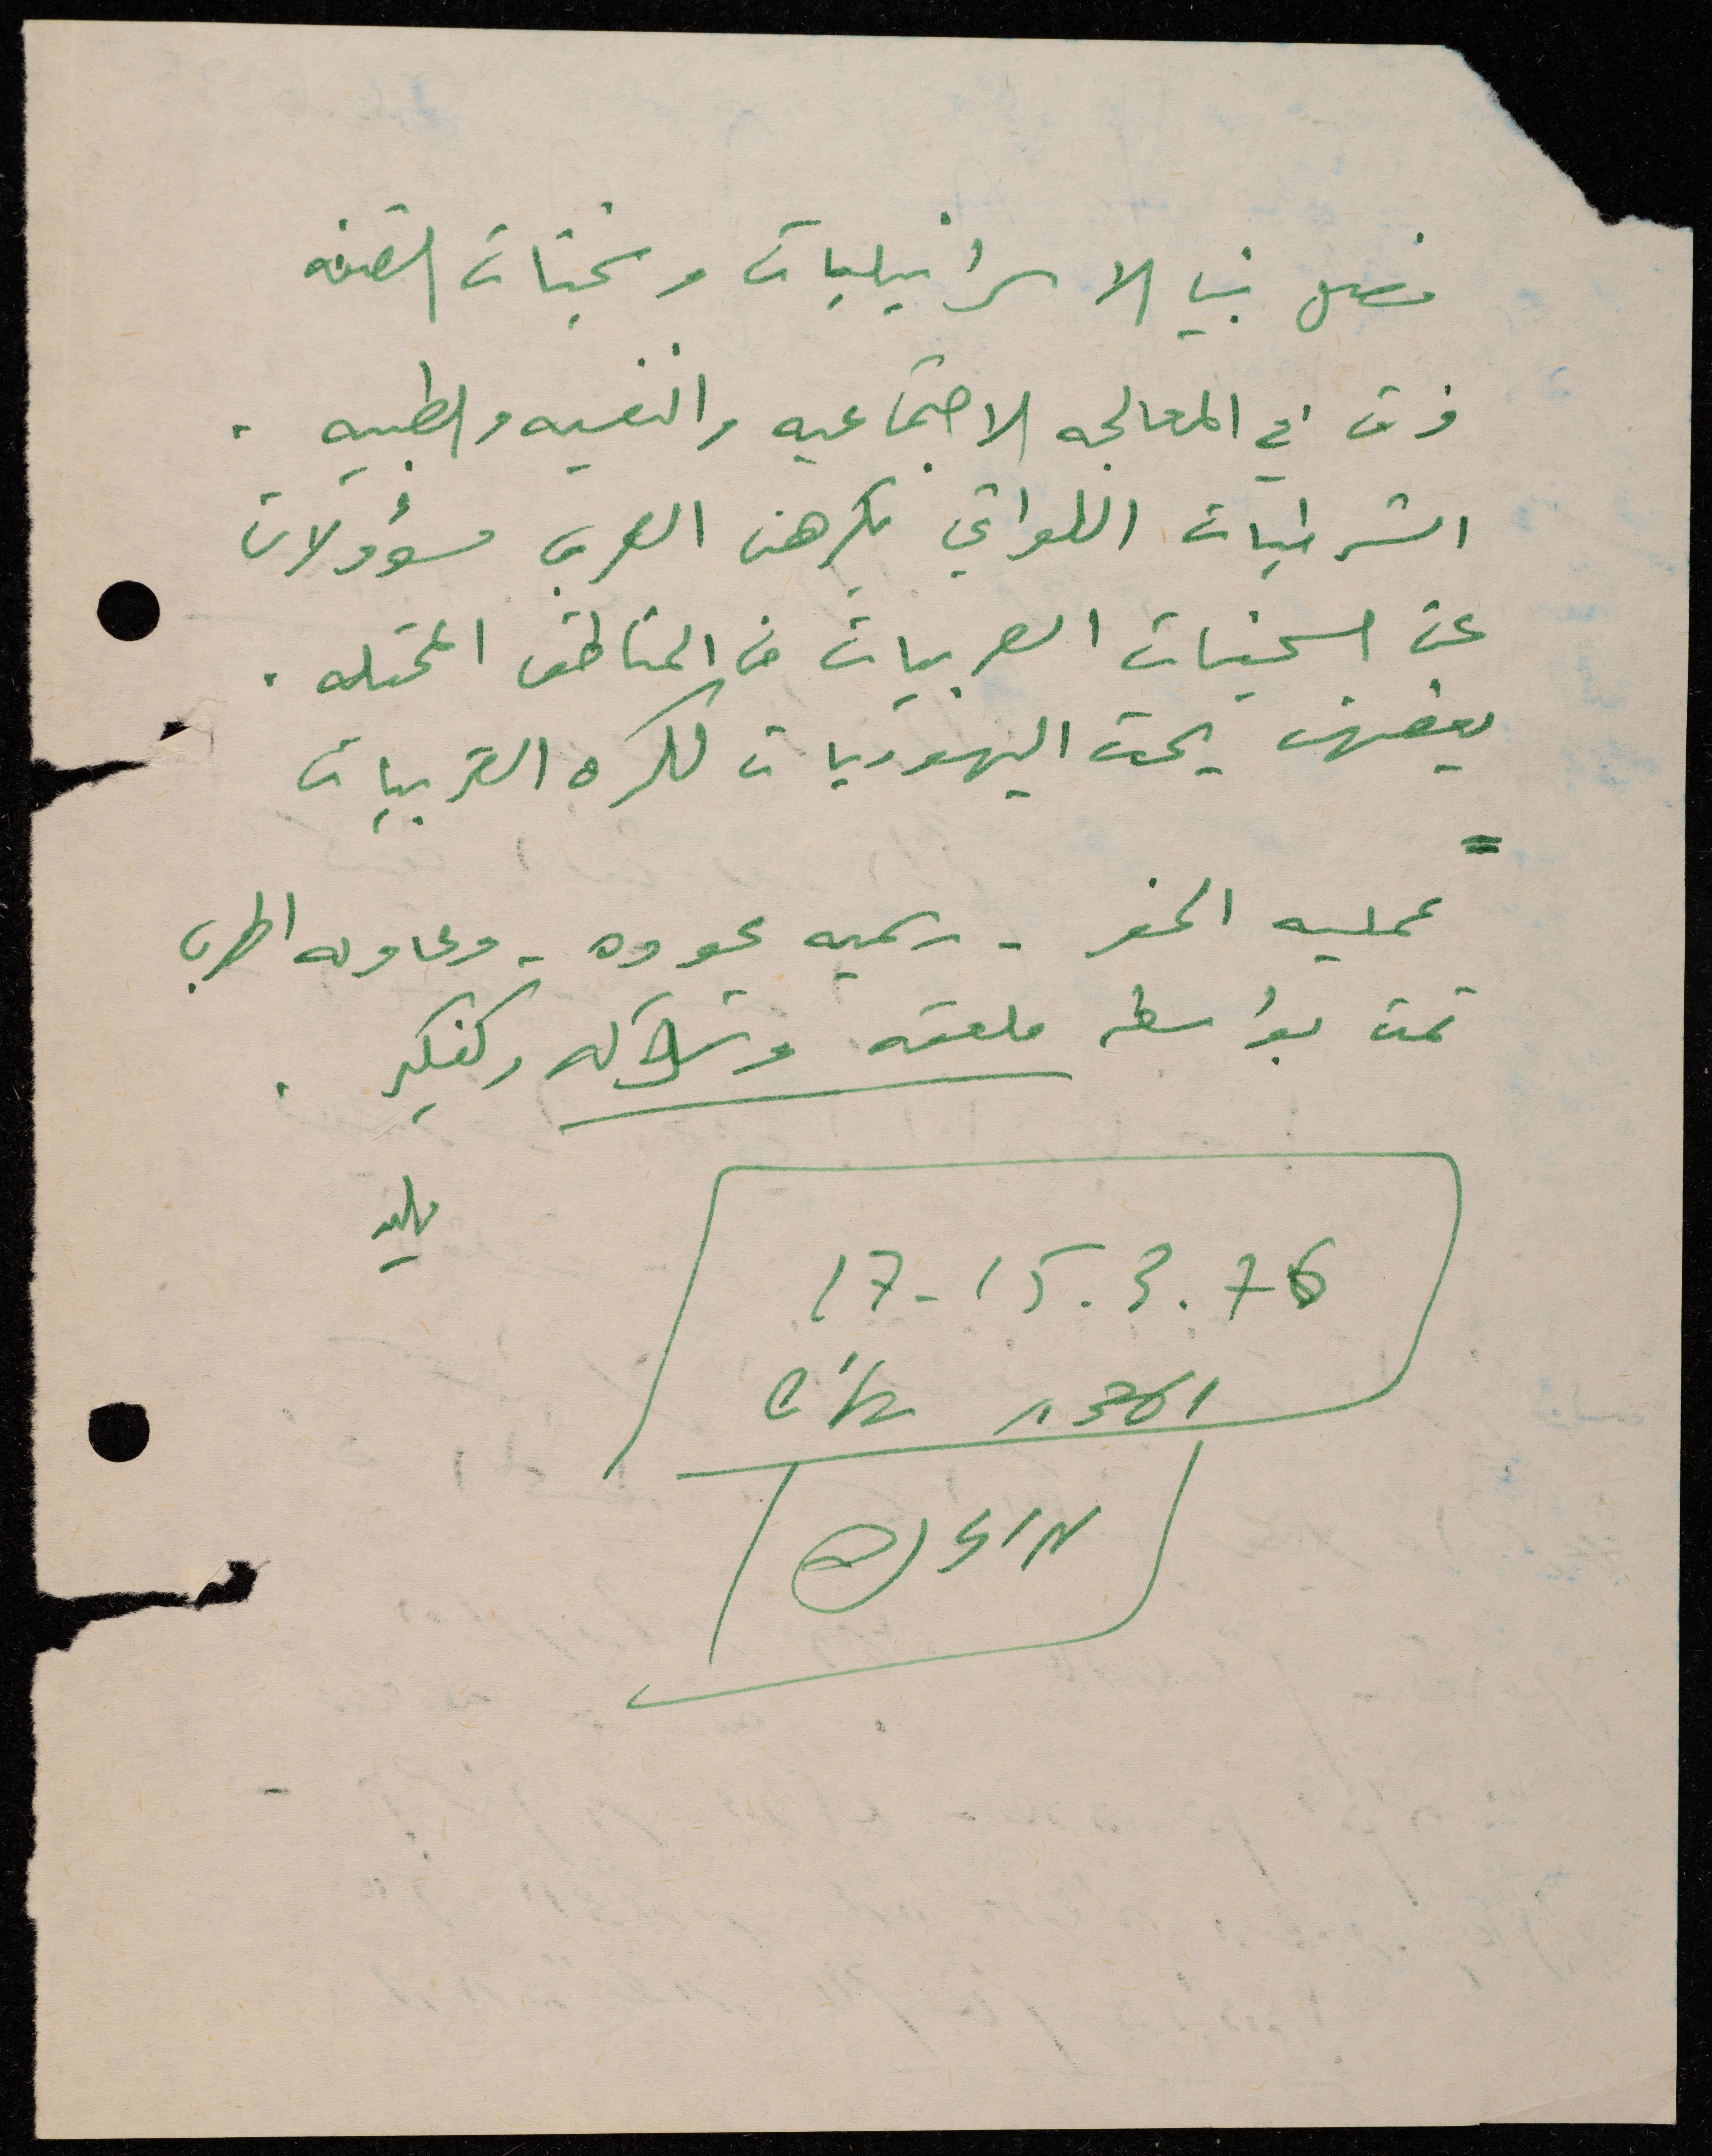 فصل بين الاسرائيليات وسجينات الضفه
فرق في المعالجه الاجتماعيه والنفسيه والطبيه .
الشرطيات اللواتي يكرهن العرب مسؤولات
عن السجينات العربيات من المناطق المحتله .
بعضهن يحث اليهوديات لكره العربيات
=
عمليه الحفر - رسميه عوده - ومحاوله الهرب
تمت بواسطه ملعقه وشاكله وكفكير .
17-15.3.76